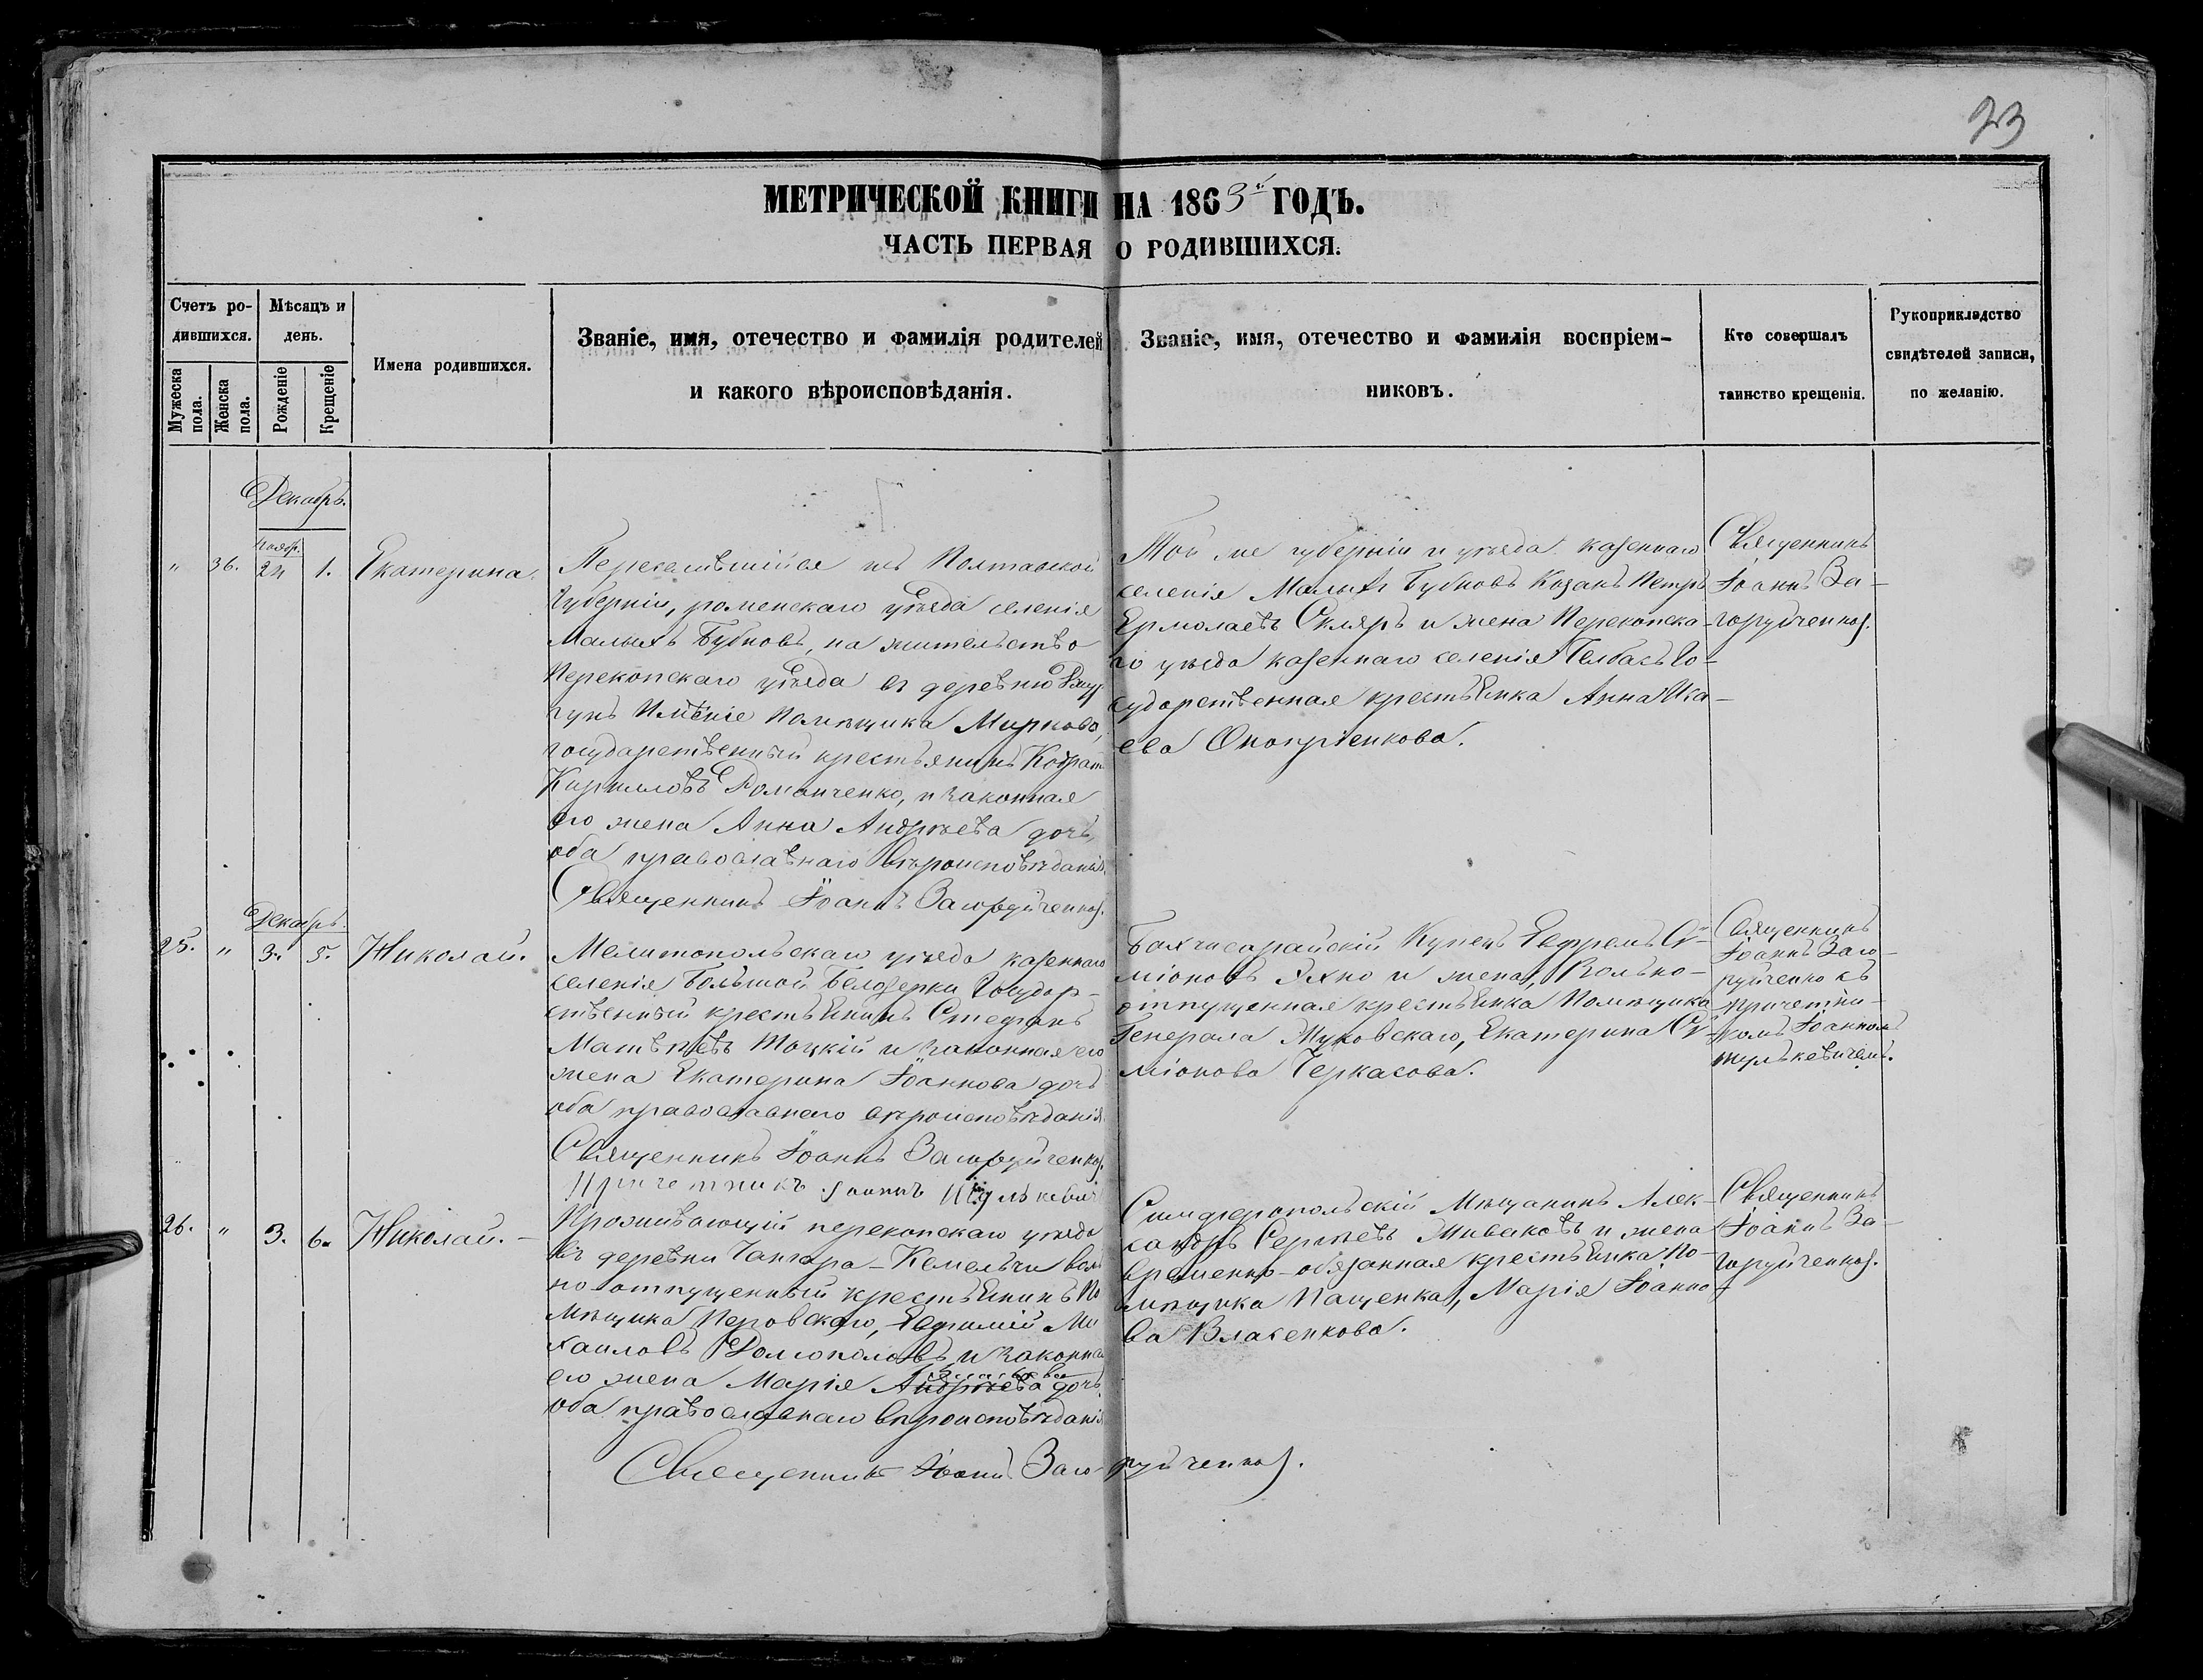 23
МЕТРИЧЕСКОЙ КНИГИ НА 1863й ГОДЪ.
ЧАСТЬ ПЕРВАЯ О РОДИВШИХСЯ.
Счетъ ро-
дившихся.
Мужеска пола.
Женска пола.
Мѣсяцъ и
день.
Рожденіе
Крещеніе
Имена родившихся.
Званіе, имя, отечество и фамилія родителей
и какого вѣроисповѣданія.
Званіе, имя, отечество и фамилія воспріем-
никовъ.
Кто совершалъ
таинство крещенія.
Рукоприкладство
свидѣтелей записи,
по желанію.
Декабрь.
Ноябр.
" 36. 24 1. Екатерина.
Переселившійся изъ Полтавской
Губерніи, роменскаго уѣзда селенія
Малыхъ Бубновъ, на жительство
Перекопскаго уѣзда въ деревню
Имѣніе Помѣщика Мирково,
государственный крестьянинъ Кодратъ
Кирилловъ Романченко, и законная
его жена Анна Андреева дочь,
оба православнаго вѣроисповѣданія.
Священникъ Іоаннъ Загоруйченко.
Той же губерніи и уѣзда казеннаго
селенія Малыхъ Бубновъ Козакъ Петръ
Ермолаевъ Скляръ и жена Перекопска-
го уѣзда казеннаго селенія Го-
сударственная крестьянка Анна
ева Оноприенкова.
Священникъ
Іоаннъ За-
горуйченко.
Декабрь.
25. " 3. 5. Николай.
Мелитопольскаго уѣзда казеннаго
селенія Большой Белозерки Государ-
ственный крестьянинъ Стефанъ
Матвѣевъ Тоцкій и законная его
жена Екатерина Іоаннова дочь
оба православнаго вѣроисповѣданія.
Священникъ Іоаннъ Загоруйченко.
Причетникъ Іоаннъ Шулькевич
Бахчисарайскій Купецъ Ефремъ Си-
міоновъ Яхно и жена, Вольно-
отпущенная крестьянка Помѣщика
Генерала Муковскаго, Екатерина Си-
міонова Черкасова.
Священникъ
Іоаннъ Заго-
руйченко съ
причетни-
комъ Іоанномъ
Шулькевичемъ.
26. " 3. 6. Николай.
Проживающій перекопскаго уѣзда
въ деревни Чангара-Кемельчи воль
но отпущенный крестьянинъ По
мѣщика Перовскаго, Ефимій Ми
хаиловъ Долгополовъ и законная
его жена Марія Андреева дочь,
оба православнаго вѣроисповѣданія
Священникъ Іоаннъ Заго-руйченко.
Симферопольскій Мѣщанинъ Алек-
сандръ Сергѣевъ Миваковъ и жена
временно-обязанная крестьянка По-
мѣщика Пащенка, Марія Іоанно-
ва Власенкова.
Священникъ
Іоаннъ За-
горуйченко.